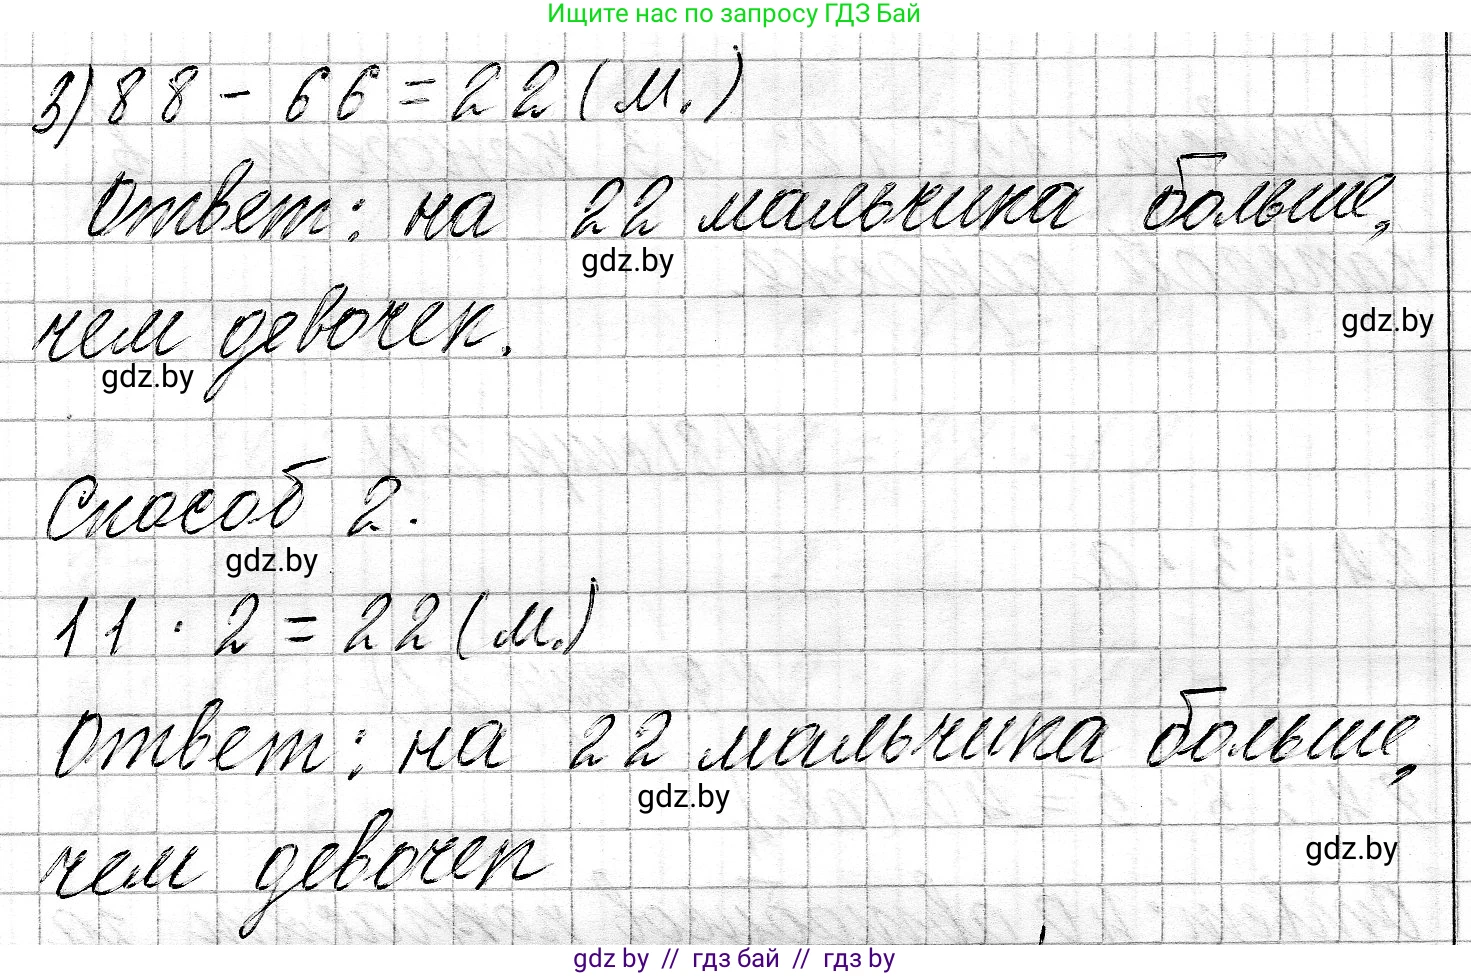 Ищите нас по запросу ГДЗ Бай
3) 88 - 66 = 22 (м.)
Ответ: на 22 мальчика больше,
gdz.by
gdz.by
чем девочек.
gdz.by
Способ 2.
gdz.by
11 · 2 = 22 (м.)
Ответ: на 22 мальчика больше,
gdz.by
gdz.by
чем девочек
gdz by // гдз бай // гдз by